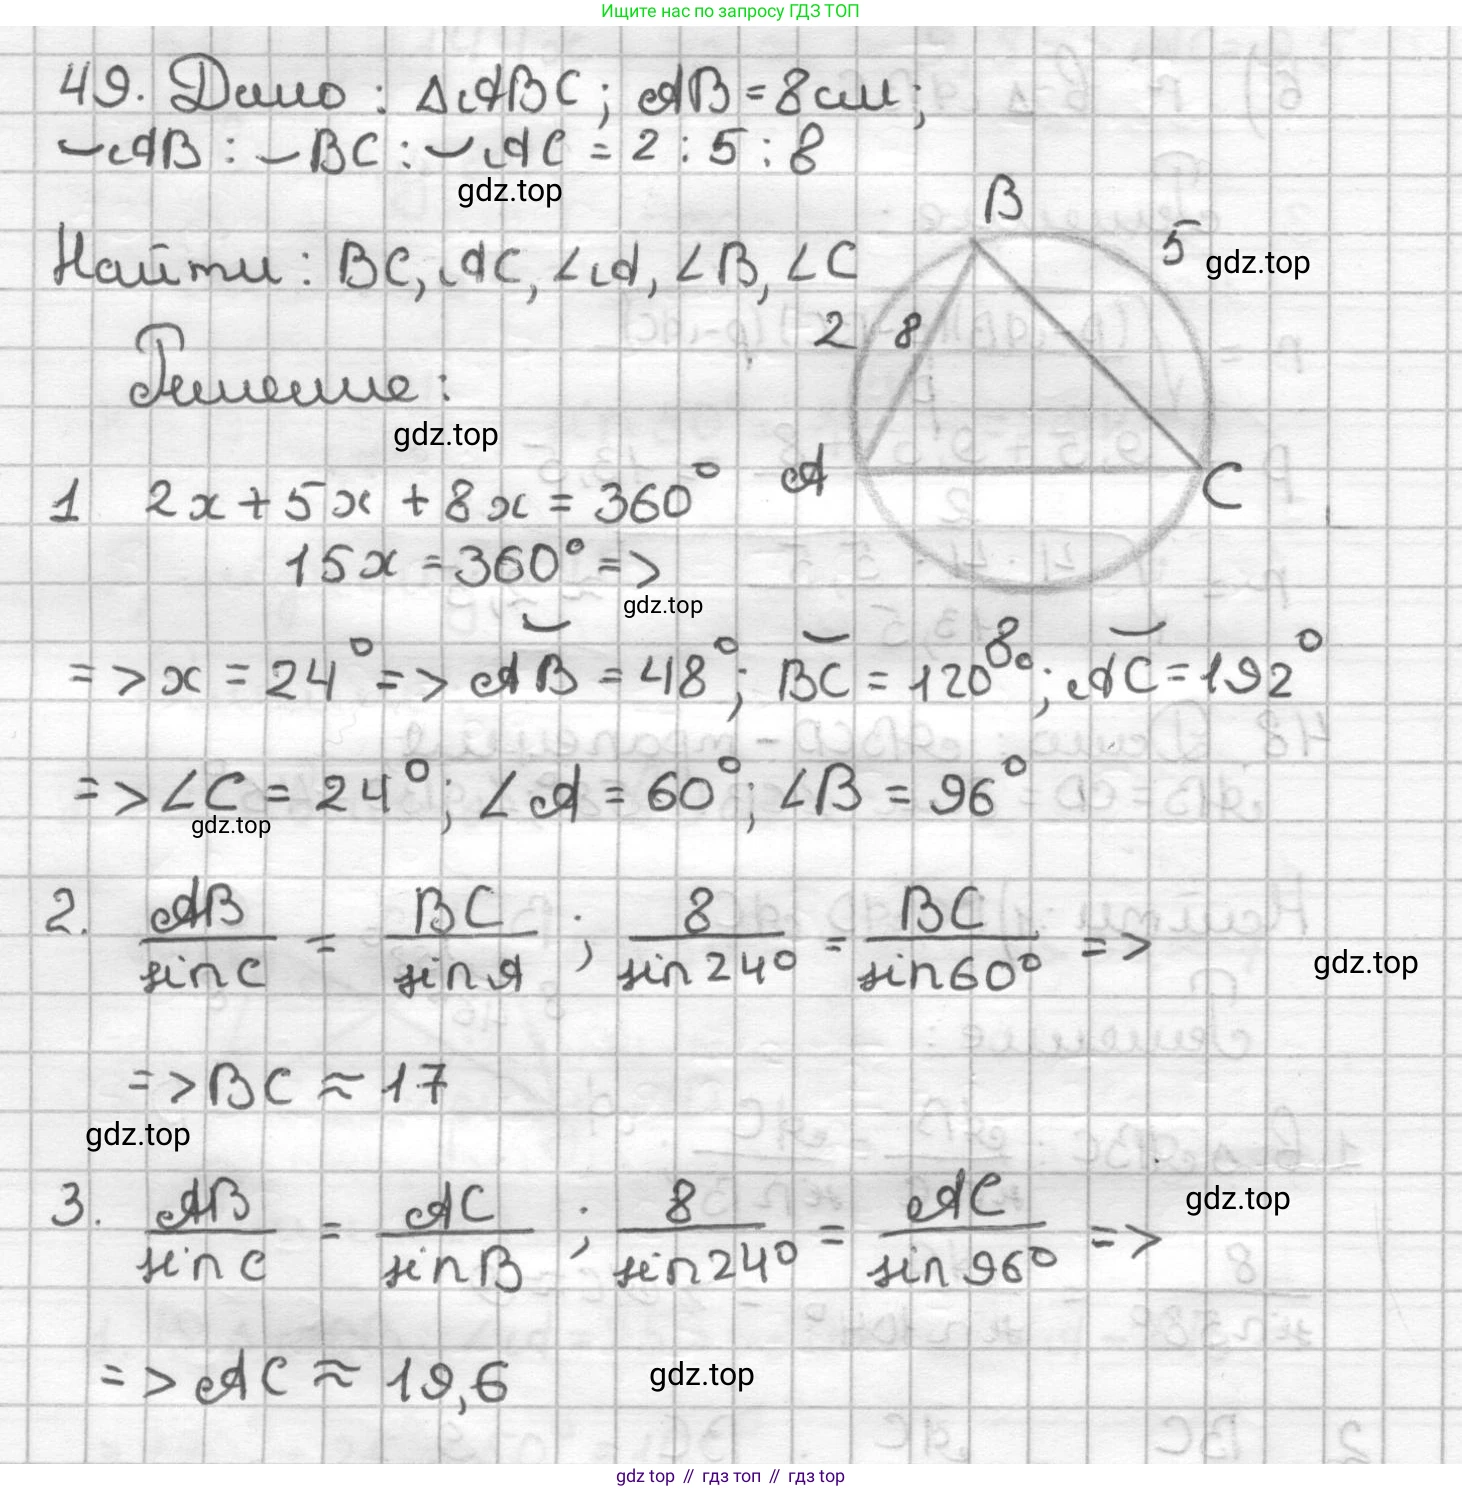 Ищите нас по запросу ГДЗ ТОП
49. Дано: ΔABC; AB = 8 см;
◡AB : ◡BC : ◡AC = 2 : 5 : 8
gdz.top
B
5
gdz.top
Найти: BC, AC, ∠A, ∠B, ∠C
2 8
Решение:
gdz.top
A
C
1 2x + 5x + 8x = 360°
15x = 360° =>
gdz.top
8
=> x = 24° => ◡AB = 48°; ◡BC = 120°; ◡AC = 192°
=> ∠C = 24°; ∠A = 60°; ∠B = 96°
gdz.top
2. AB/sin C = BC/sin A; 8/sin 24° = BC/sin 60° =>
gdz.top
=> BC ≈ 17
gdz.top
3. AB/sin C = AC/sin B; 8/sin 24° = AC/sin 96° =>
gdz.top
=> AC ≈ 19,6
gdz.top
gdz top // гдз топ // гдз top